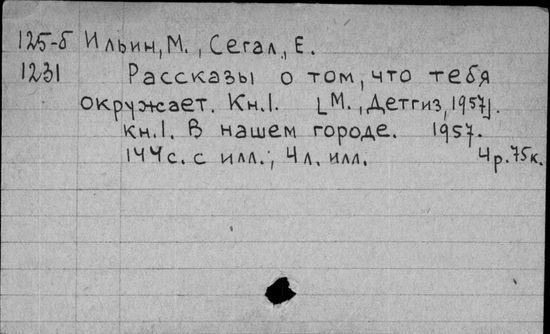 125-б Ильин, М., Сегал, Е.
1231 Рассказы о том, что тебя
окружает. Кн.1. [М., Детгиз, 1957].
кн.1. В нашем городе. 1957.
144с. с илл.; 4л. илл. 4р.75к.